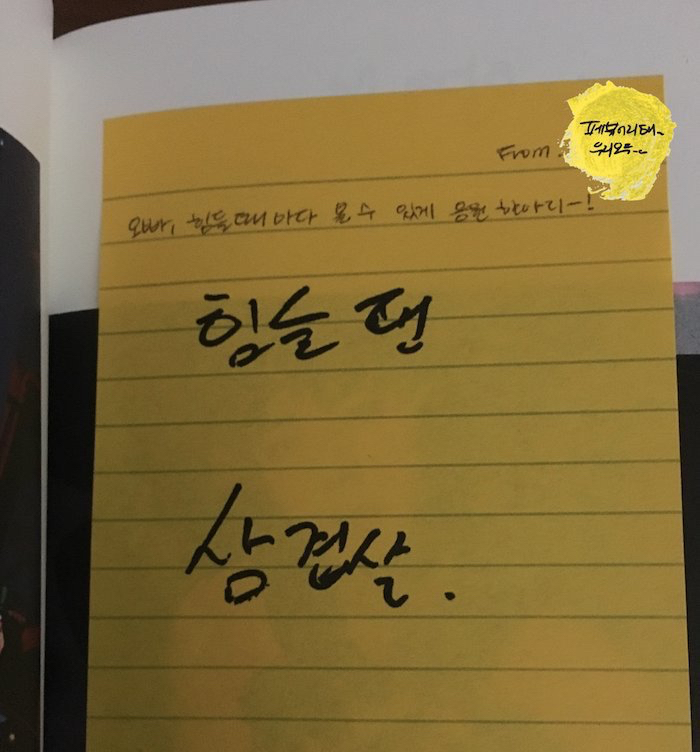 From.
오빠, 힘들때마다 볼 수 있게 응원 한마디~!
힘들 땐
삼겹살.